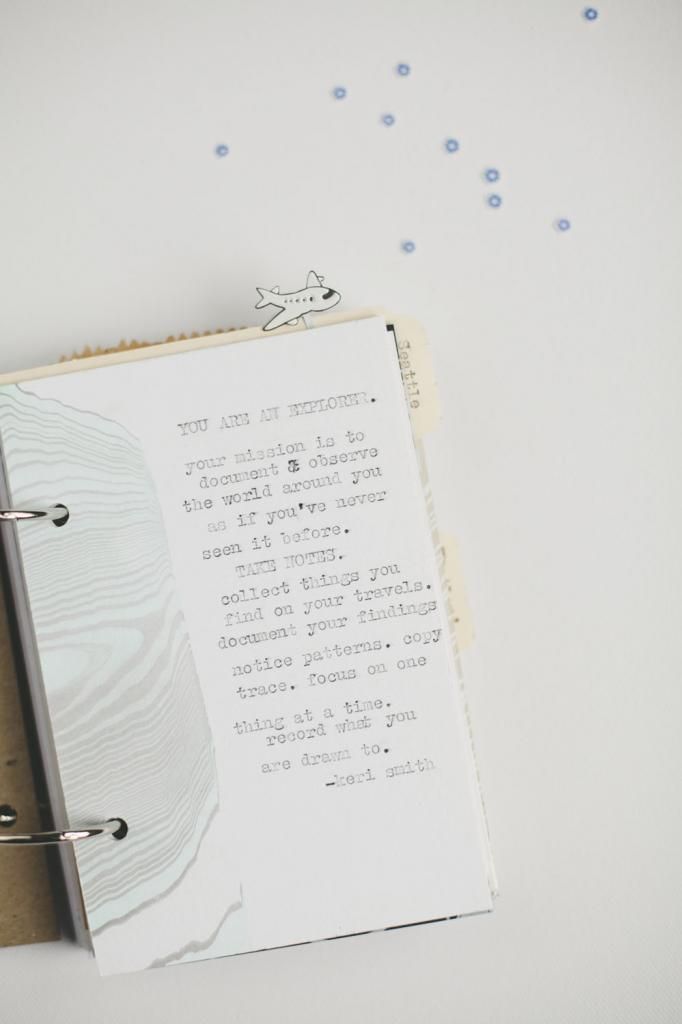 YOU ARE AN EXPLORER.
your mission is to
document & observe
the world around you
as if you've never
seen it before.
TAKE NOTES.
collect things you
find on your travels.
document your findings
notice patterns. copy
trace. focus on one
thing at a time.
record what you
are drawn to.
-keri smith
Seattle